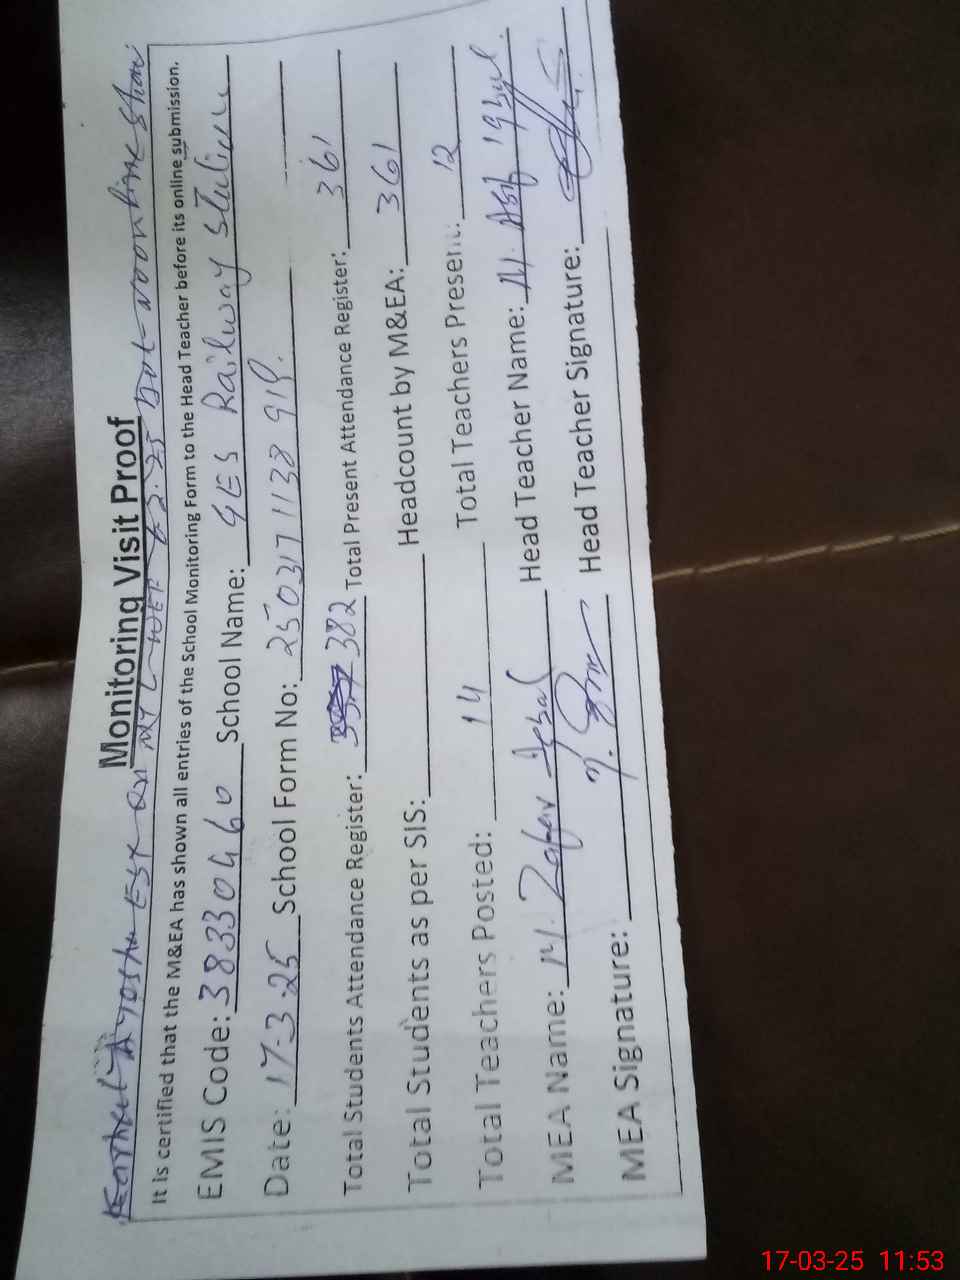 Monitoring Visit Proof
on not noontime
It is certified that the M&EA has shown all entries of the School Monitoring Form to the Head Teacher before its online submission.
EMIS Code: 38330460 School Name: GES Railway Station
Date: 17-3-25 School Form No: 2503171138919.
Total Students Attendance Register: 382 Total Present Attendance Register: 361
Total Students as per SIS: Headcount by M&EA: 361
Total Teachers Posted: 14 Total Teachers Present: 12
MEA Name: M. Zafar Iqbal Head Teacher Name: M. Asif Iqbal.
MEA Signature: Head Teacher Signature:
17-03-25 11:53